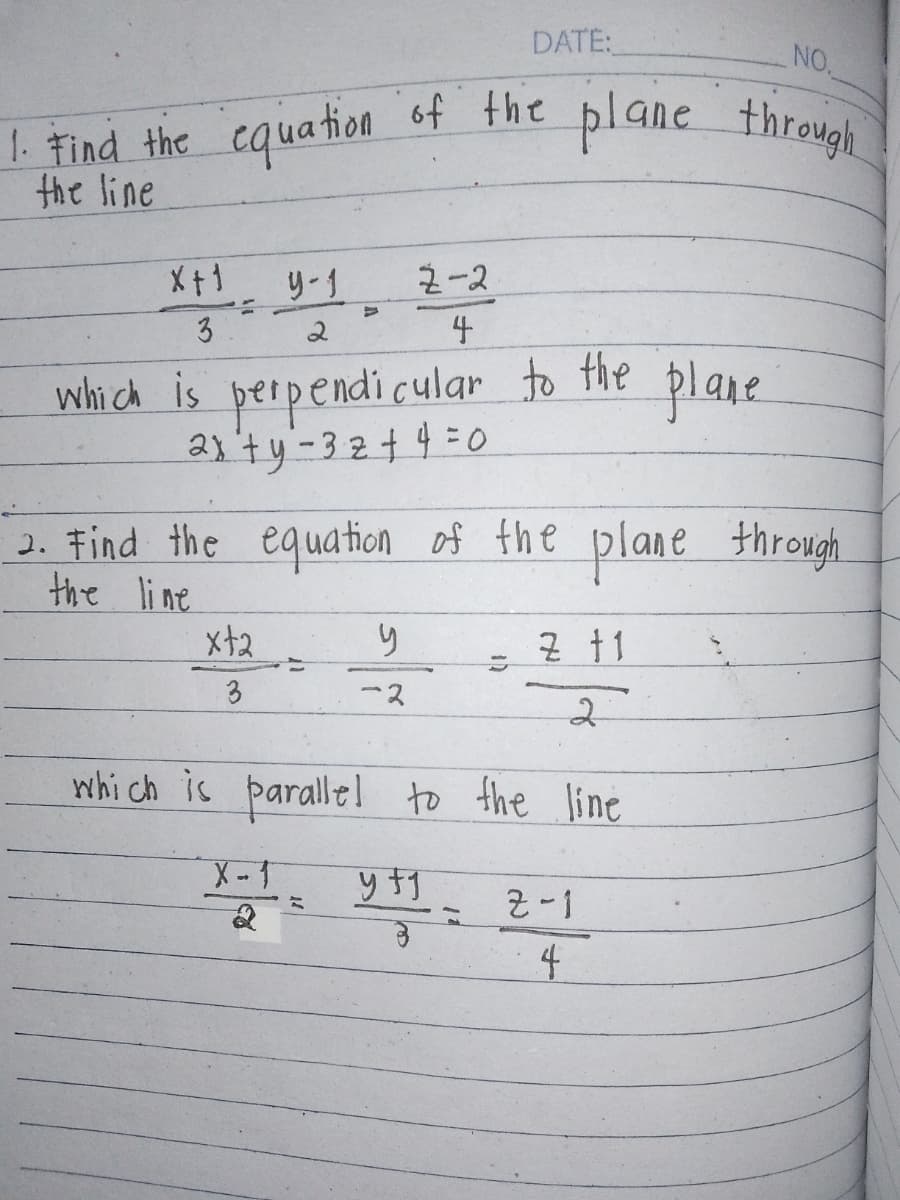 DATE: NO.
1. Find the equation of the plane through
the line
x+1/3 = y-1/2 = z-2/4
which is perpendicular to the plane
2x+y-3z+4=0
2. Find the equation of the plane through
the line
x+2/3 = y/-2 = z+1/2
which is parallel to the line
x-1/2 = y+1/3 = z-1/4